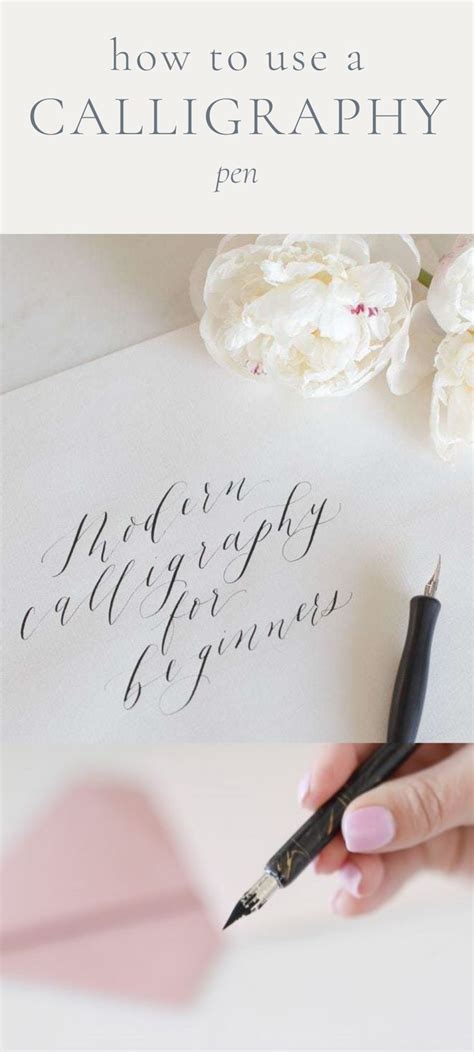 how to use a
CALLIGRAPHY
pen
Modern
calligraphy
for
beginners